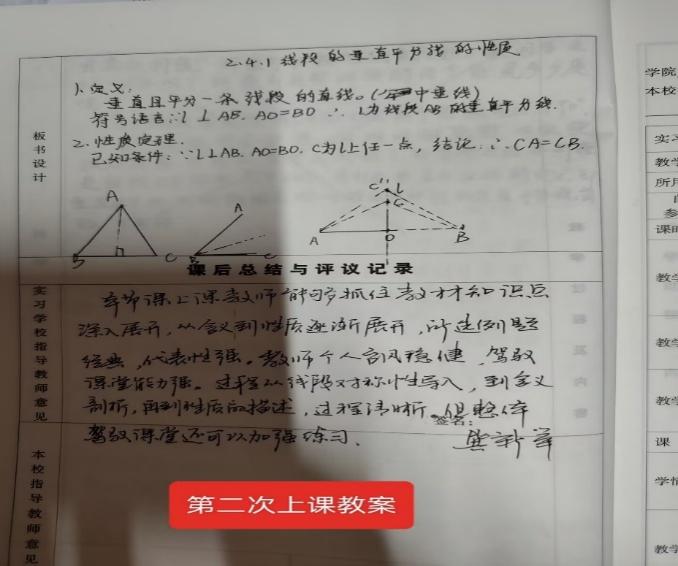 2.4.1 线段的垂直平分线的性质
1. 定义:
垂直且平分一条线段的直线。(中垂线)
符号语言:∵l⊥AB, AO=BO ∴l为线段AB的垂直平分线.
2. 性质定理.
已知条件:∵l⊥AB. AO=BO. C为l上任一点,结论:∴CA=CB.
板书设计
A
B
C
A
B
C
C'
l
C
A
O
B
课后总结与评议记录
实习学校指导教师意见
章节课上课教师能够抓住教材知识点
深入展开,从含义到性质逐渐展开,所选例题
经典,代表性强。教师个人台风稳健,驾驭
课堂能力强。过程从线段对称性导入,到含义
剖析,再到性质的描述,过程清晰。但整体
驾驭课堂还可以加强练习.
签名:
本校指导教师意见
第二次上课教案
学院
本校
实习
教学
所用
课时
教学
教学
教学
课
学情
教学